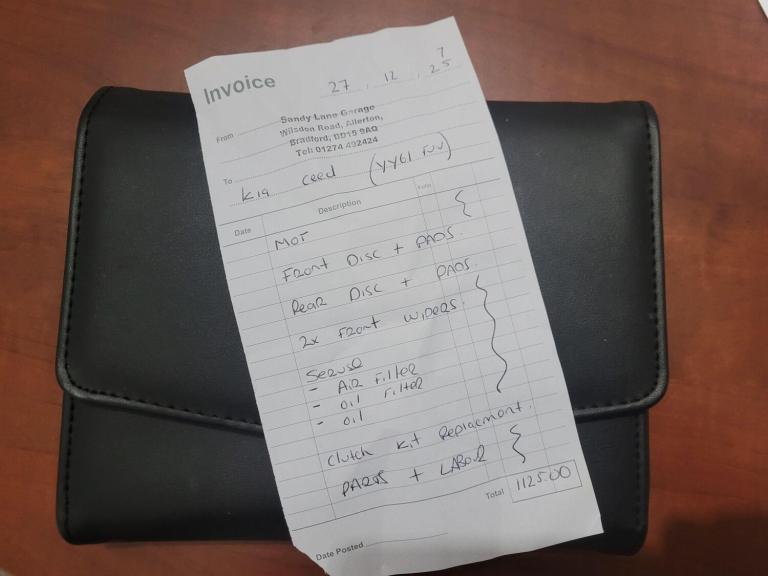 Invoice
27 . 12 . 25
7
From
Sandy Lane Garage
Wilsden Road, Allerton,
Bradford, BD15 9AQ
Tel: 01274 492424
To
Kia ceed (YY61
Date Description
MOT
Front Disc + PADS.
Rear Disc + PADS.
2x Front wipers.
Service
- Air Filter
- oil Filter
- oil
Clutch Kit Replacment.
PARTS + LABOUR
Total 1125.00
Date Posted